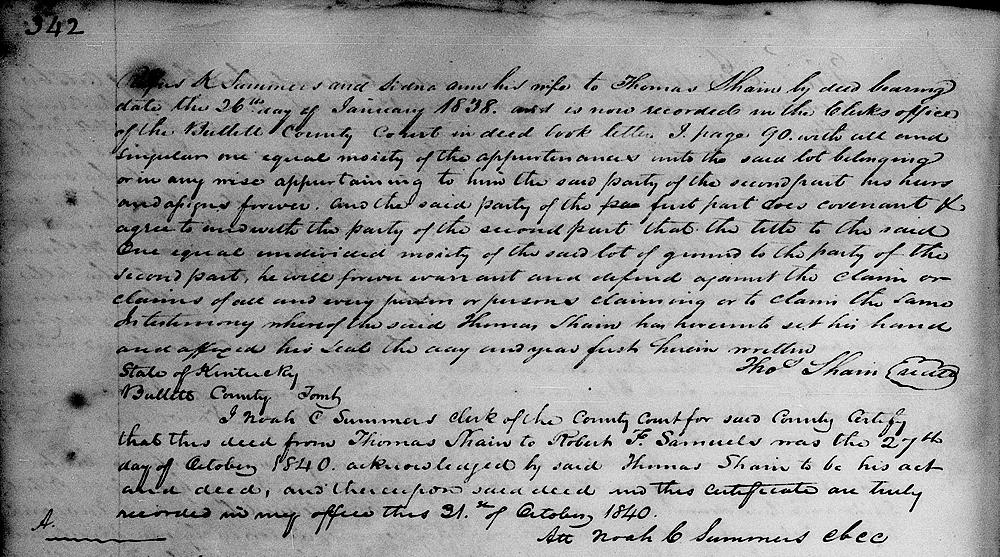 342
Rufus K Summers and Sidna ann his wife to Thomas Shain by deed bearing
date the 26th day of January 1838. and is now recorded in the Clerks office
of the Bullett County Court in deed book letter I. page 90. with all and
singular one equal moiety of the appurtenances unto the said lot belonging
or in any wise appurtaining to him the said party of the second part his heirs
and assigns forever. and the said party of the first part does covenant &
agree to and with the party of the second part that the title to the said
One equal undivided moiety of the said lot of ground to the party of the
second part, he will forever warrant and defend against the claim or
claims of all and every person or persons claiming or to claim the same
In testimony whereof the said Thomas Shain has hereunto set his hand
and affixed his seal the day and year first herein written
Thos Shain Seal
State of Kentucky
Bullett County Towit
I Noah C Summers clerk of the County Court for said County Certify
that this deed from Thomas Shain to Robert F. Samuels was the 27th
day of October 1840. acknowledged by said Thomas Shain to be his act
and deed, and thereupon said deed and this certificate are truly
recorded in my office this 31.st of October 1840.
A.
Att Noah C Summers cbcc